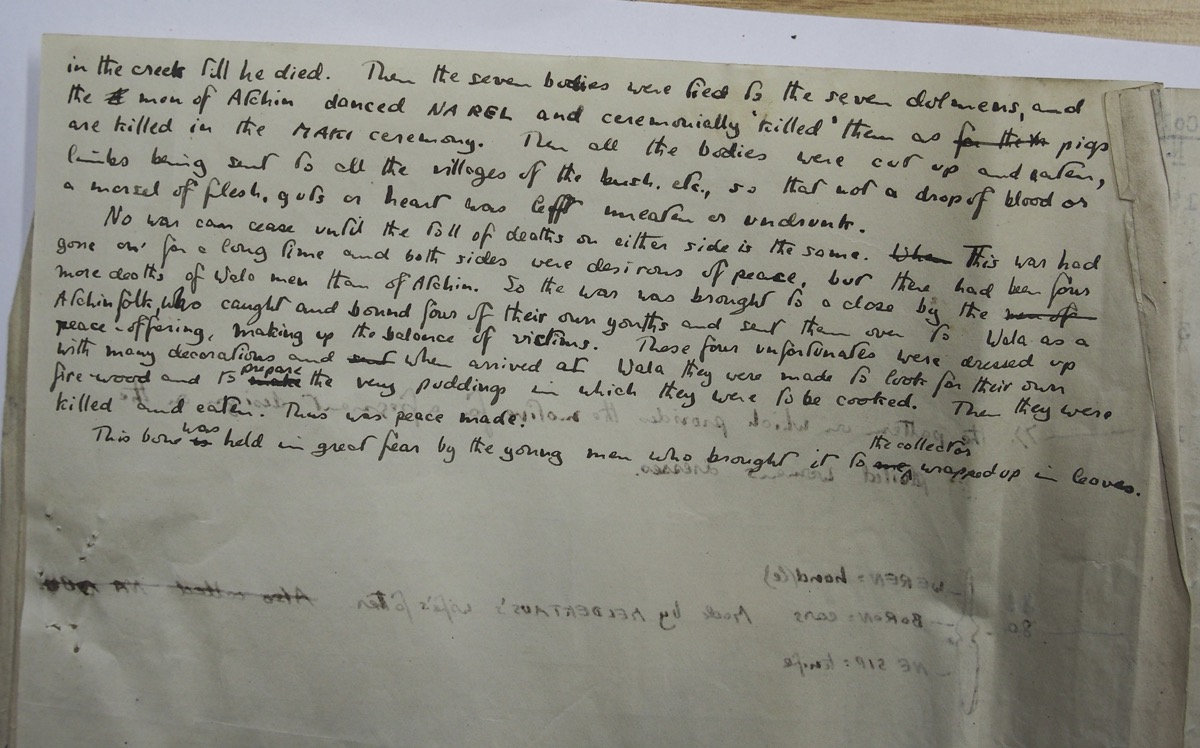 in the creek till he died. Then the seven bodies were tied to the seven dolmens, and
the men of Atchin danced NA REL and ceremonially 'killed' them as for the pigs
are killed in the MAKI ceremony. Then all the bodies were cut up and eaten,
limbs being sent to all the villages of the bush. etc., so that not a drop of blood or
a morsel of flesh, guts or heart was left uneaten or undrunk.
No war can cease until the toll of deaths on either side is the same. When This war had
gone on for a long time and both sides were desirous of peace, but there had been four
more deaths of Wala men than of Atchin. So the war was brought to a close by the men of
Atchinfolk, who caught and bound four of their own youths and sent them over to Wala as a
peace-offering, making up the balance of victims. These four unfortunates were dressed up
with many decorations and sent when arrived at Wala they were made to look for their own
fire-wood and to make prepare the very puddings in which they were to be cooked. Then they were
killed and eaten. Thus was peace made.
This bone is was held in great fear by the young men who brought it to me, the collector wrapped up in leaves.
pattern in which provides the
women's dresses.
WEREN = hand(le)
BORON = ears Made by MELDEKTAUS's wife's father Also called NA
NE SIP = knife